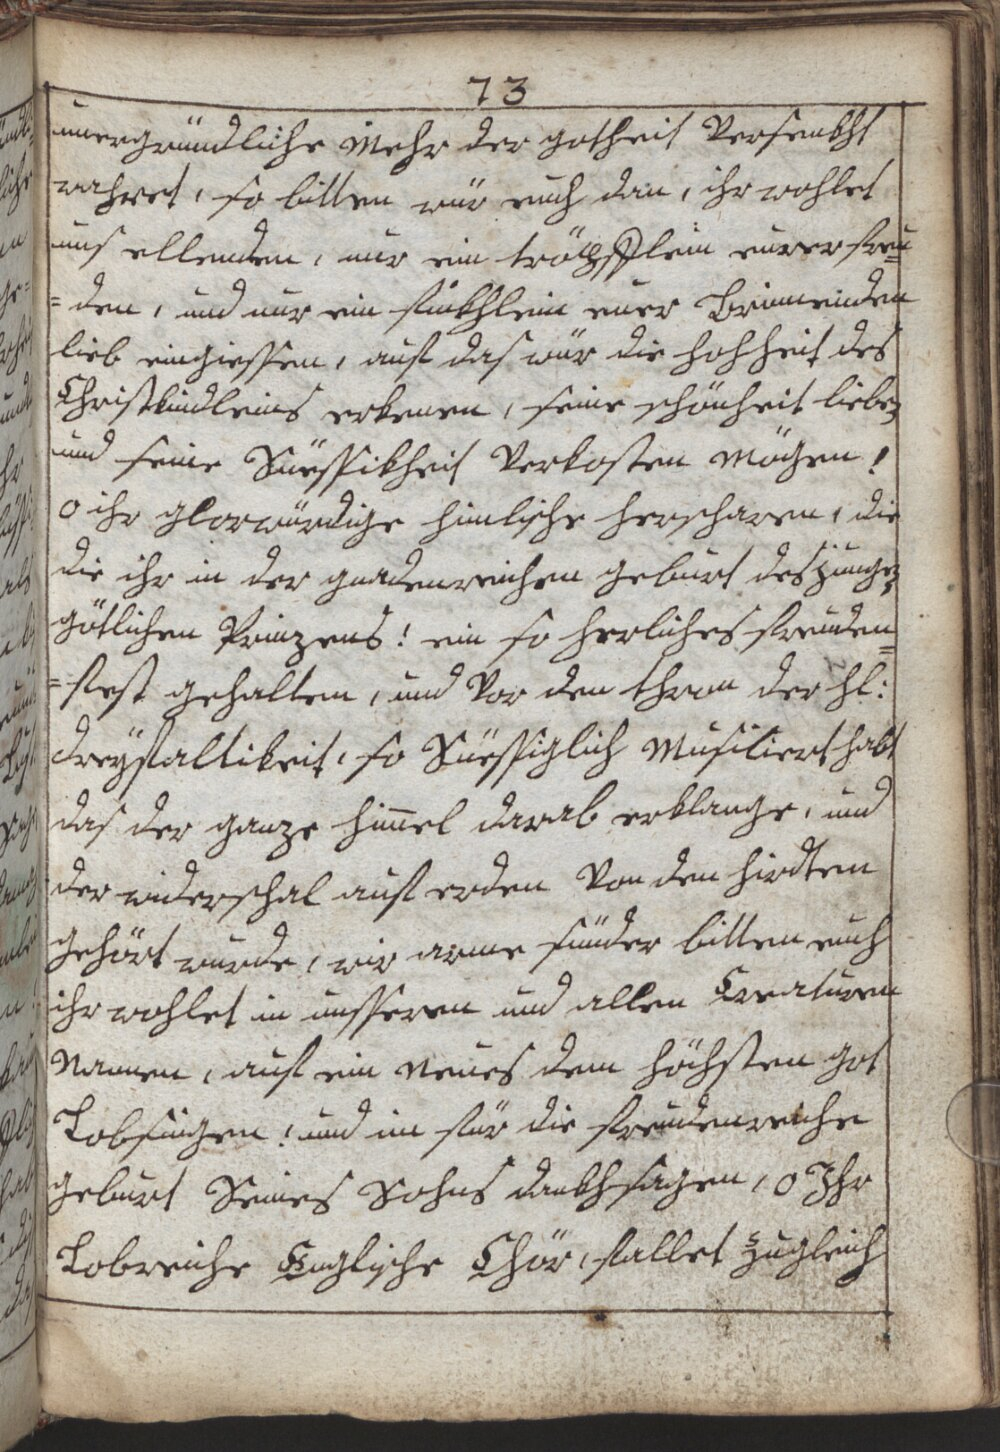 73
unergründliche Mehr der gotheit Versenkht
wahret, so bitten wür euch dan, ihr wohlet
uns ellenden, nur ein tröpflein eurer freu=
=den, und nur ein finkhlein euer Brinnenden
lieb eingiessen, auf das wür die hohheit des
Christkindleins erkenen, seine schönheit lieben
und seine Süessikheit Verkosten mögen!
o ihr glorwürdige himlische herscharen, die
die ihr in der gnadenreichen geburt des jungen
götlichen Prinzens! ein so herliches freuden=
=fest gehalten, und Vor den thron der hl:
dreyfaltikeit, so Süessiglich Musiciert habt
das der ganze himel darab erklange, und
der widerschal auf erden Von den hirdten
gehört wurde, wir arme sünder bitten euch
ihr wohlet in unsseren und allen Creaturen
Nammen, auf ein Neues dem höchsten got
Lobsingen! und im für die freudenreiche
geburt Seines Sohns dankhsagen, o Ihr
Lobreiche Englische Chör, fallet zugleich